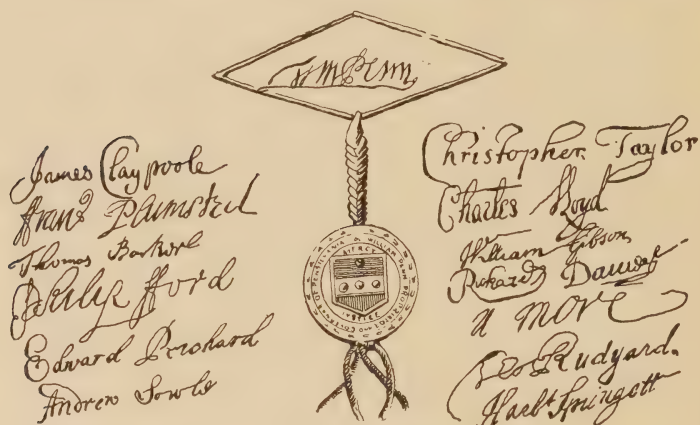 Wm Penn
James Claypoole
Fran^s Plumsted
Thomas Barker
Philip fford
Edward Prichard
Andrew Sowle
Christopher Taylor
Charles Lloyd
William Gibson
Richard Davies
N More
Geo Rudyard.
Harb^t Springett
WILLIAM PENN PROPRIETOR AND GOVERNOR OF PENSILVANIA
MERCY
JUSTICE